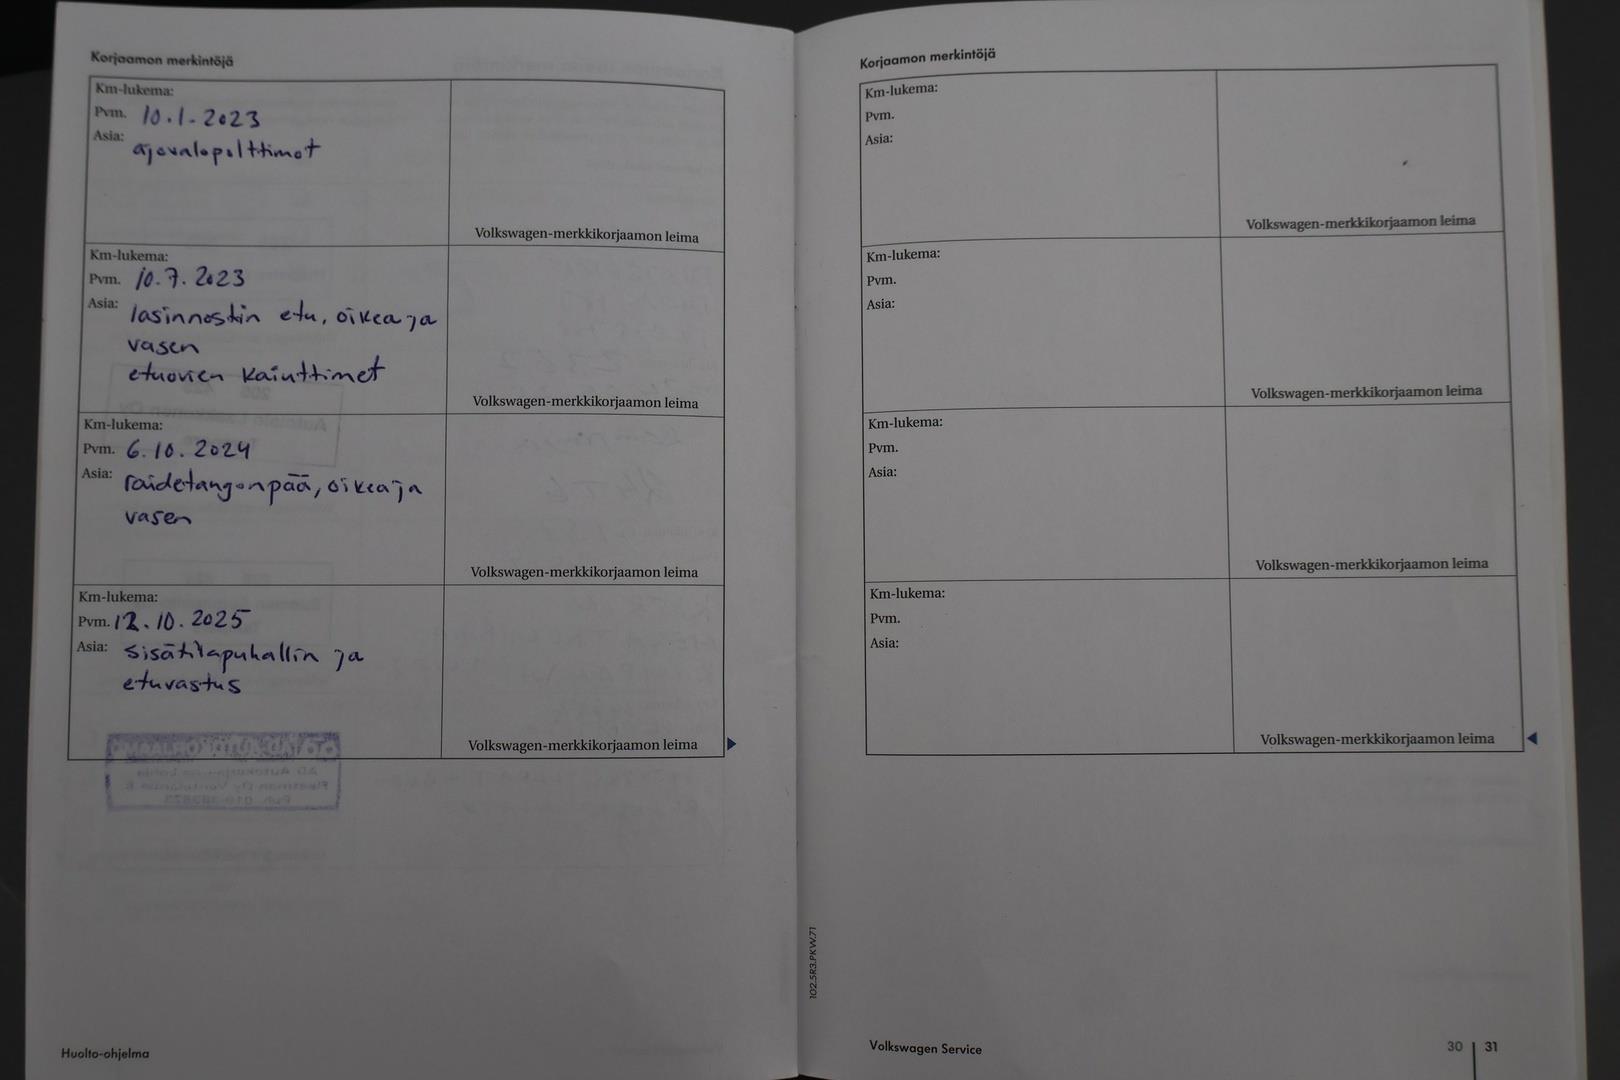 Korjaamon merkintöjä
Km-lukema:
Pvm. 10.1.2023
Asia: ajovalopolttimot
Volkswagen-merkkikorjaamon leima
Km-lukema:
Pvm. 10.7.2023
Asia: lasinnostin etu, oikea ja
vasen
etuovien kaiuttimet
Volkswagen-merkkikorjaamon leima
Km-lukema:
Pvm. 6.10.2024
Asia: raidetangonpää, oikea ja
vasen
Volkswagen-merkkikorjaamon leima
Km-lukema:
Pvm. 12.10.2025
Asia: sisätilapuhallin ja
etuvastus
Volkswagen-merkkikorjaamon leima
Huolto-ohjelma
Korjaamon merkintöjä
Km-lukema:
Pvm.
Asia:
Volkswagen-merkkikorjaamon leima
Km-lukema:
Pvm.
Asia:
Volkswagen-merkkikorjaamon leima
Km-lukema:
Pvm.
Asia:
Volkswagen-merkkikorjaamon leima
Km-lukema:
Pvm.
Asia:
Volkswagen-merkkikorjaamon leima
102.5R3.PKW.71
Volkswagen Service
30 31